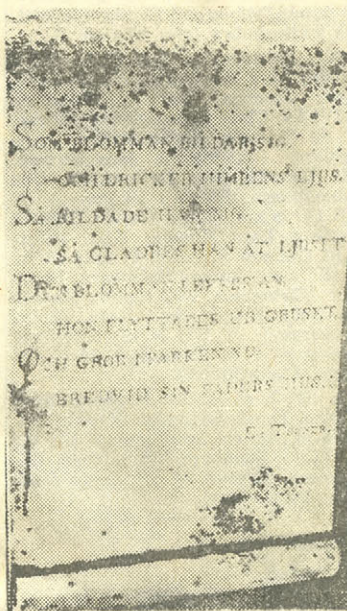 SOM BLOMMAN BILDAR SIG,
OCH DRICKER HIMLENS LJUS,
SÅ BILDADE HAN SIG,
SÅ GLADDES HAN ÅT LJUSET
DEN BLOMMAN LEFVER ÄN,
HON FLYTTADES UR GRUSET,
OCH GROR I PARKEN NU
BREDVID SIN FADERS HUS.
E. TEGNÉR.